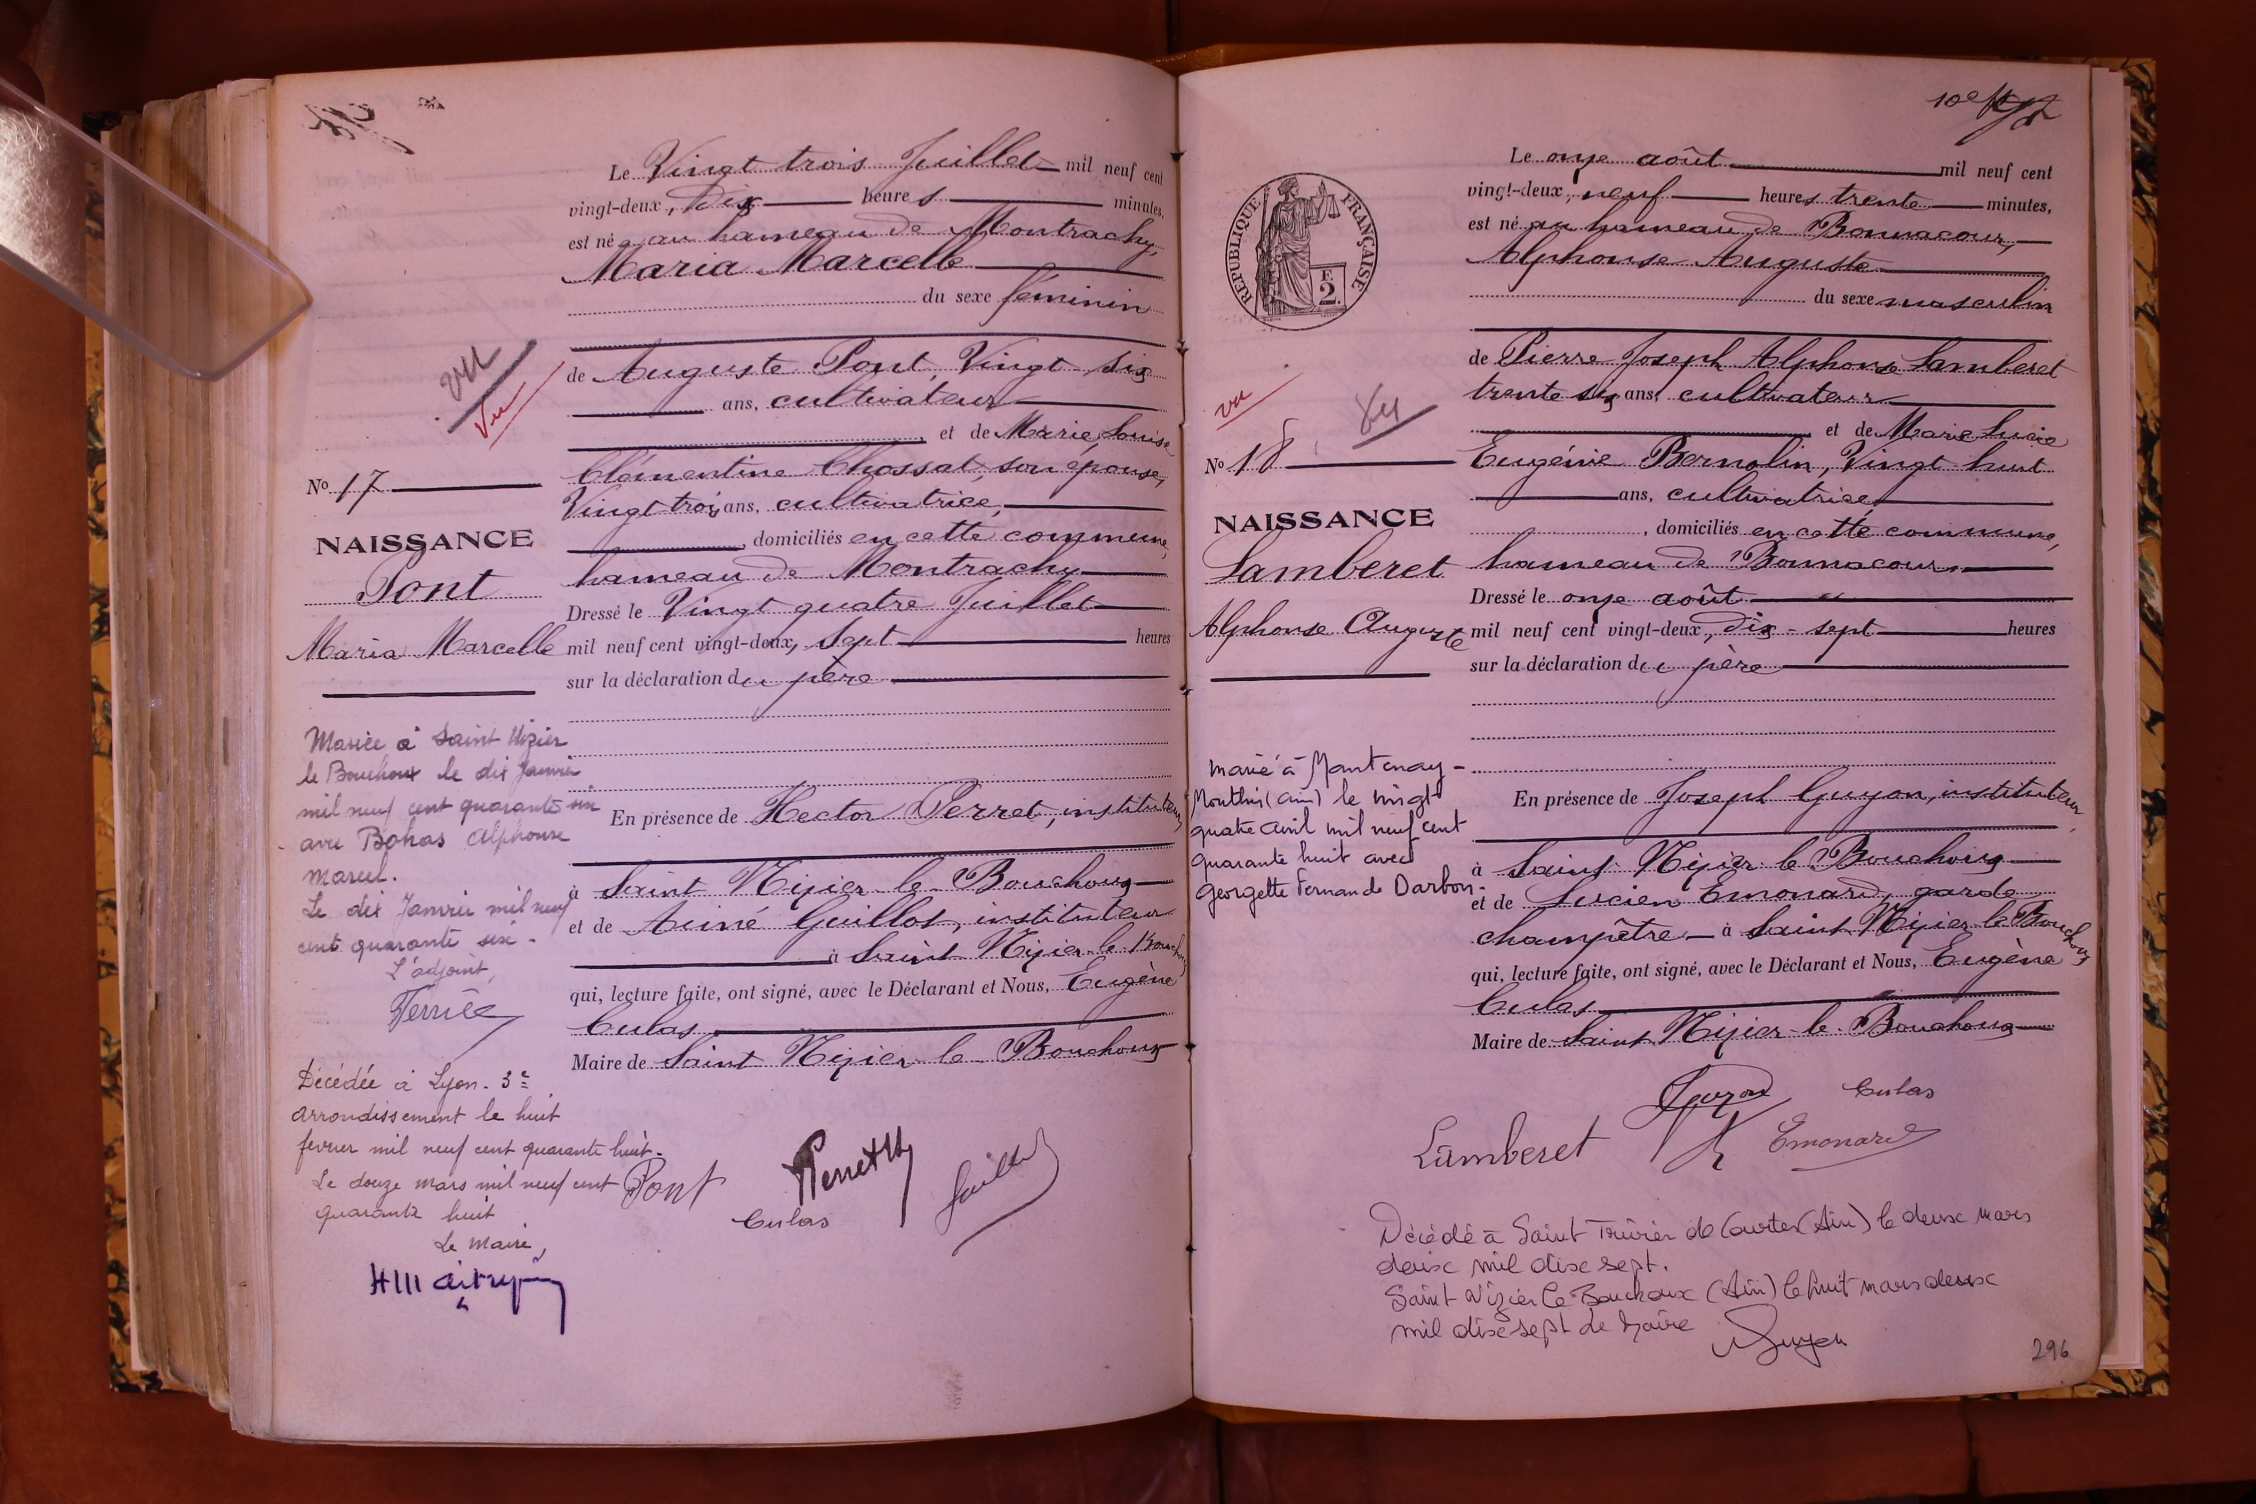 Le Vingt trois Juillet mil neuf cent
vingt-deux, dix heures minutes,
est née au hameau de Montrachy,
Maria Marcelle
du sexe féminin
vu
vu
de Auguste Pont, Vingt six
ans, cultivateur
et de Marie, Louise
Clémentine Chossat, son épouse,
Vingt trois ans, cultivatrice,
domiciliés en cette commune,
hameau de Montrachy
Dressé le Vingt quatre Juillet
mil neuf cent vingt-deux, sept heures
sur la déclaration du père
No 17
NAISSANCE
Pont
Maria Marcelle
En présence de Hector Perret, instituteur,
à Saint Nizier le Bouchoux
et de Aimé Guillot, instituteur
à Saint Nizier le Bouchoux
qui, lecture faite, ont signé, avec le Déclarant et Nous, Eugène
Culas
Maire de Saint Nizier le Bouchoux
Mariée à Saint Nizier
le Bouchoux le dix Janvier
mil neuf cent quarante six
avec Bohas Alphonse
Marcel.
Le dix Janvier mil neuf
cent quarante six.
L'adjoint,
Décédée à Lyon. 3e
arrondissement le huit
fevrier mil neuf cent quarante huit.
Le douze mars mil neuf cent
quarante huit
Le Maire,
Pont
Culas
Guillot
10e
Le onze août mil neuf cent
vingt-deux, neuf heures trente minutes,
est né au hameau de Bonnacour,
Alphonse Auguste
du sexe masculin
RÉPUBLIQUE FRANÇAISE
F.
2.
vu
vu
de Pierre Joseph Alphonse Lamberet
trente six ans, cultivateur
et de Marie Lucie
Eugénie Bernolin, Vingt huit
ans, cultivatrice
domiciliés en cette commune,
hameau de Bonnacour,
Dressé le onze août
mil neuf cent vingt-deux, dix-sept heures
sur la déclaration du père
No 18
NAISSANCE
Lamberet
Alphonse Auguste
En présence de Joseph Guyon, instituteur,
à Saint Nizier le Bouchoux
et de Lucien Emonard, garde
champêtre à Saint Nizier le Bouchoux
qui, lecture faite, ont signé, avec le Déclarant et Nous, Eugène
Culas
Maire de Saint Nizier le Bouchoux
marié à Mantenay-
Montlin (Ain) le vingt
quatre avril mil neuf cent
quarante huit avec
Georgette Fernande Darbon.
Guyon
Culas
Lamberet
Emonard
Décédé à Saint Trivier de Courtes (Ain) le deux mars
deux mil dix sept.
Saint Nizier le Bouchoux (Ain) le huit mars deux
mil dix sept Le Maire
296